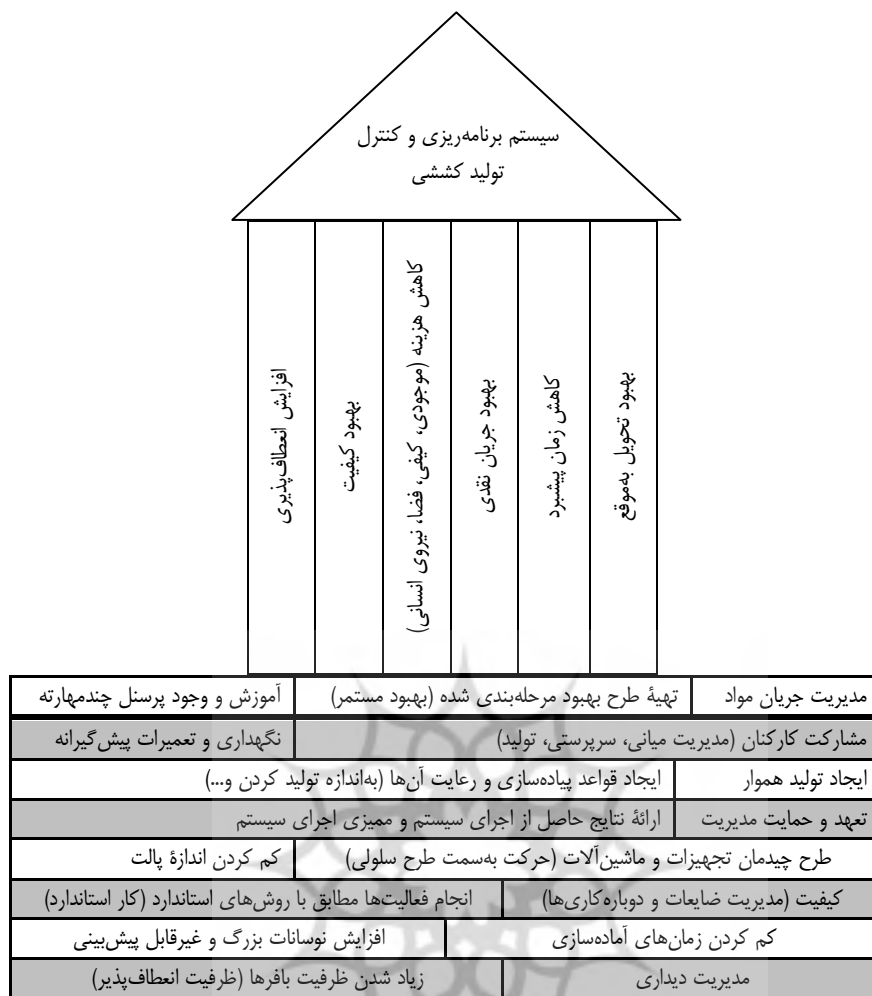 سیستم برنامه‌ریزی و کنترل
تولید کششی
بهبود تحویل به‌موقع
کاهش زمان پیشبرد
بهبود جریان نقدی
کاهش هزینه (موجودی، کیفی، فضا، نیروی انسانی)
بهبود کیفیت
افزایش انعطاف‌پذیری
مدیریت جریان مواد تهیهٔ طرح بهبود مرحله‌بندی شده (بهبود مستمر) آموزش و وجود پرسنل چندمهارته
مشارکت کارکنان (مدیریت میانی، سرپرستی، تولید) نگهداری و تعمیرات پیش‌گیرانه
ایجاد تولید هموار ایجاد قواعد پیاده‌سازی و رعایت آن‌ها (به‌اندازه تولید کردن و...)
تعهد و حمایت مدیریت ارائهٔ نتایج حاصل از اجرای سیستم و ممیزی اجرای سیستم
طرح چیدمان تجهیزات و ماشین‌آلات (حرکت به‌سمت طرح سلولی) کم کردن اندازهٔ پالت
کیفیت (مدیریت ضایعات و دوباره‌کاری‌ها) انجام فعالیت‌ها مطابق با روش‌های استاندارد (کار استاندارد)
کم کردن زمان‌های آماده‌سازی افزایش نوسانات بزرگ و غیرقابل پیش‌بینی
مدیریت دیداری زیاد شدن ظرفیت بافرها (ظرفیت انعطاف‌پذیر)